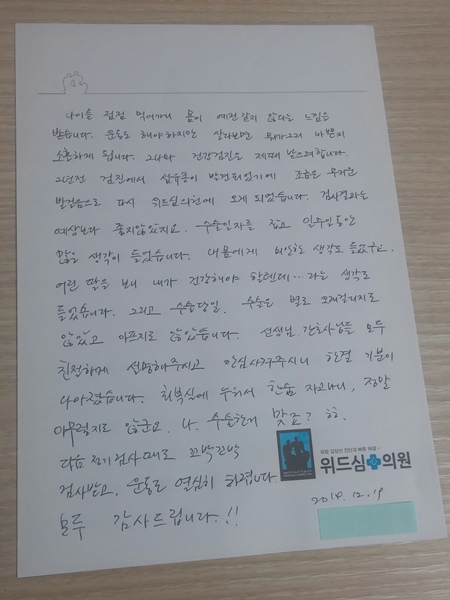 나이를 점점 먹어가니 몸이 예전같지 않다는 느낌을
받습니다. 운동도 해야하지만 살다보면 뭐가그리 바쁜지
소홀하게 됩니다. 그나마 건강검진은 제때 받으려합니다.
2년전 검진에서 섬유종이 발견되었기에 조금은 무거운
발걸음으로 다시 위드심의원에 오게 되었습니다. 검사결과는
예상보다 좋지않았지요. 수술일자를 잡고 일주일동안
많은 생각이 들었습니다. 내몸에게 미안한 생각도 들었구요.
어린 딸을 보니 내가 건강해야 할텐데...라는 생각도
들었습니다. 그리고 수술당일. 수술은 별로 오래걸리지도
않았고 아프지도 않았습니다. 선생님, 간호사님들 모두
친절하게 설명해주시고 안심시켜주시니 한결 기분이
나아졌습니다. 회복실에 누워서 한숨 자고나니, 정말
아무렇지도 않군요. 나. 수술한거 맞죠? 하.
다음 정기검사때도 꼬박꼬박
검사받고, 운동도 열심히 하겠습니다
모두 감사드립니다.!!
유방 갑상선 진단과 빠른 해결
위드심의원
2014.12.19